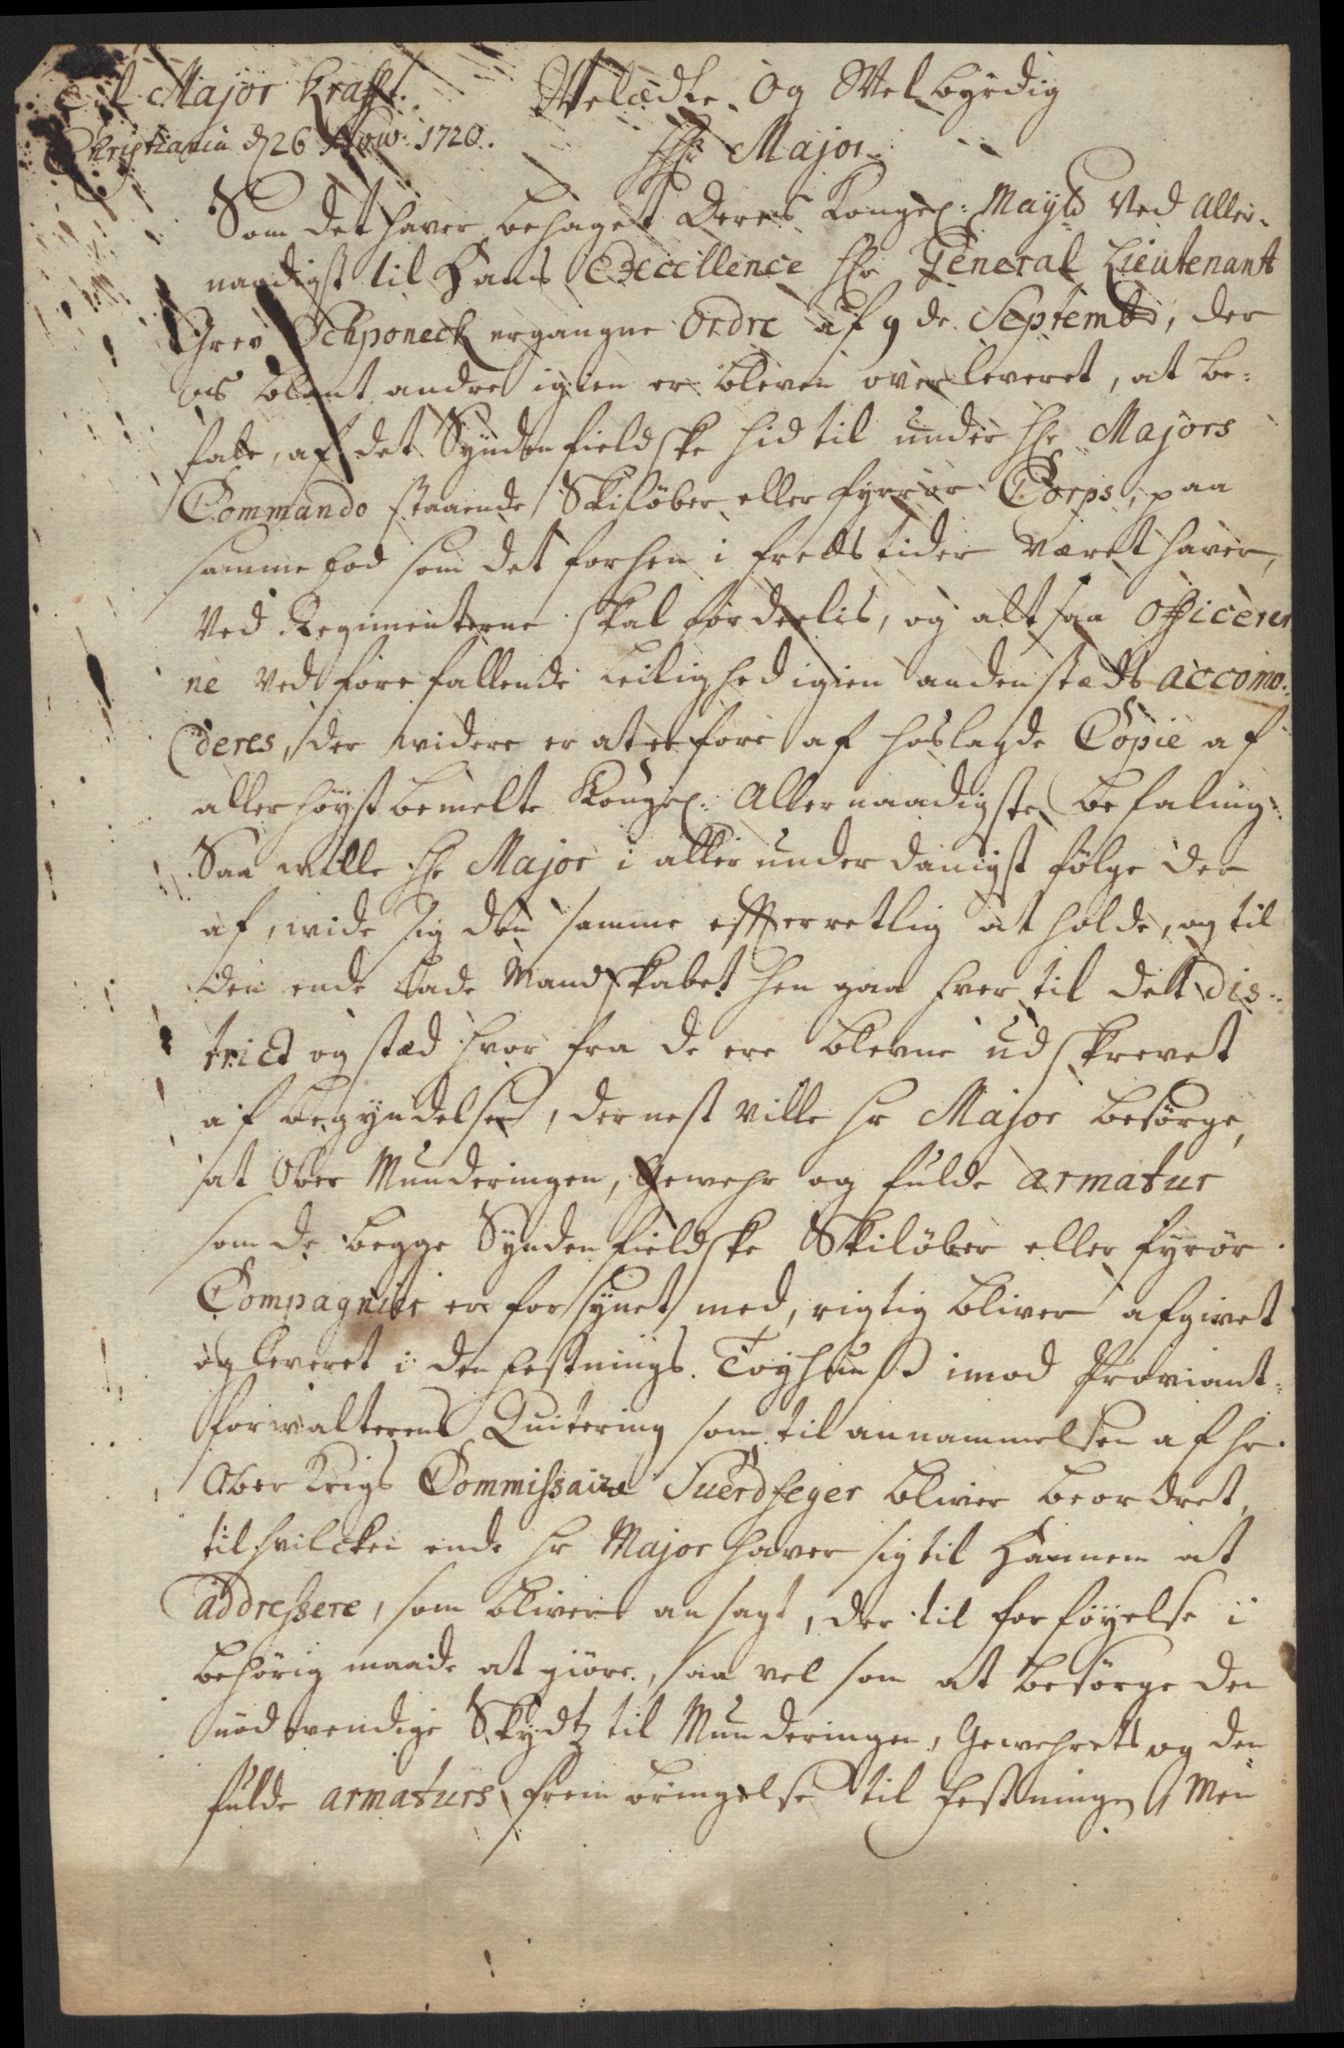 Til Major Krafft.
Christiania d 26 Now: 1720.
Welædle Og Wel byrdig
Hr Major
Som det haver behaget Deres Kongel: Mayts Ved Aller-
naadigst til Hans Excellence Hr General Lieutenant
Grev Schponeck ergangne Ordre af 9 de Septembr, der
os blant andre igien er bleven overleveret, at be-
fale, af det Syndenfieldske hid til under Hr Majors
Commando staaende Skiløber eller fyrrør Corps, paa
samme fod som det forhen i freds tider været haver,
Ved Regimenterne skal fordeelis, og alt saa Officerer
ne ved fore fallende Leilighed igien andenstæds accomo-
deres, der widere er at erfare af hoslagde Copie af
allerhøyst bemelte Kongel: Allernaadigste befaling
Saa wille Hr Major i aller under danigst følge der
af, wide sig den samme efterretlig at holde, og til
den ende lade Mandskabet hen gaa hver til det dis-
trict og stæd hvor fra de ere blevne udskrevet
af begyndelsen, dernest ville Hr Major besørge,
at Ober Munderingen, Gewehr og fulde armatur
som de begge Syndenfieldske Skiløber eller fyrør
Compagnier er forsynet med, rigtig bliver afgivet
og leveret i den festnings Tøyhuuse imod Proviant-
forwalterens Quitering som til annammelsen af Hr
Ober Krigs Commissaire Suerdfeger bliver beordret,
til hvilcken ende Hr Major haver sig til Hannem at
addressere, som bliver an sagt, der til forføyelse i
behørig maade at giøre, saa vel som at besørge den
nødwendige Skydtz til Munderingen, Gewehrets og den
fulde armaturs frem bringelse til festningen, Men